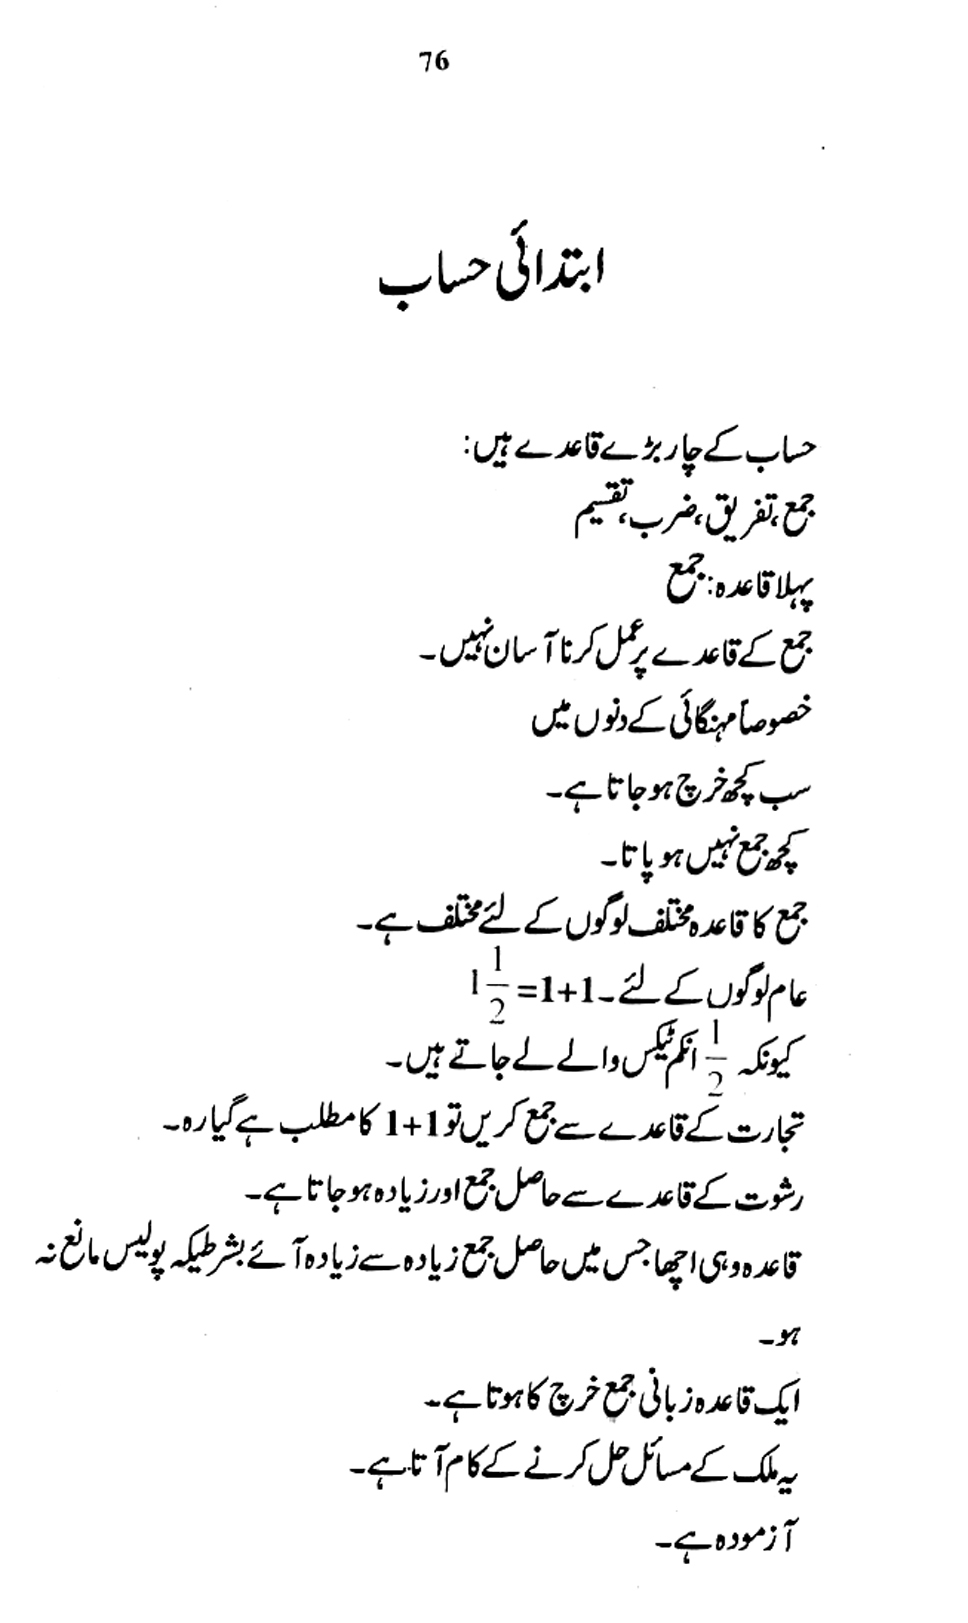 76
ابتدائی حساب
حساب کے چار بڑے قاعدے ہیں:
جمع، تفریق، ضرب، تقسیم
پہلا قاعدہ: جمع
جمع کے قاعدے پر عمل کرنا آسان نہیں۔
خصوصاً مہنگائی کے دنوں میں
سب کچھ خرچ ہو جاتا ہے۔
کچھ جمع نہیں ہو پاتا۔
جمع کا قاعدہ مختلف لوگوں کے لئے مختلف ہے۔
عام لوگوں کے لئے۔ 1+1=1 1/2
کیونکہ 1/2 انکم ٹیکس والے لے جاتے ہیں۔
تجارت کے قاعدے سے جمع کریں تو 1+1 کا مطلب ہے گیارہ۔
رشوت کے قاعدے سے حاصل جمع اور زیادہ ہو جاتا ہے۔
قاعدہ وہی اچھا جس میں حاصل جمع زیادہ سے زیادہ آئے بشرطیکہ پولیس مانع نہ
ہو۔
ایک قاعدہ زبانی جمع خرچ کا ہوتا ہے۔
یہ ملک کے مسائل حل کرنے کے کام آتا ہے۔
آزمودہ ہے۔